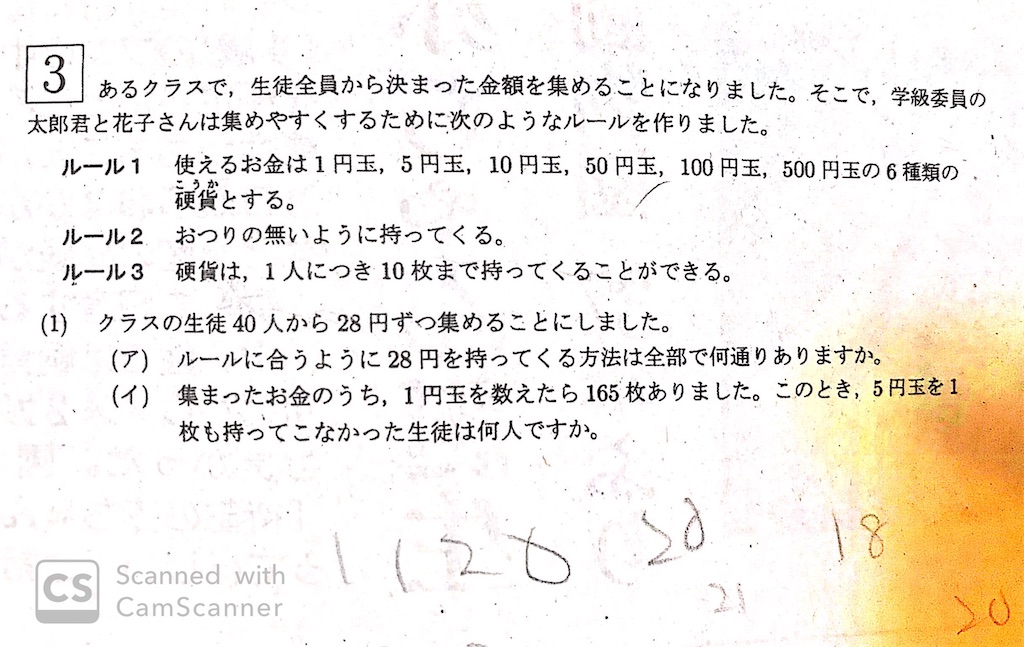 3 あるクラスで，生徒全員から決まった金額を集めることになりました。そこで，学級委員の
太郎君と花子さんは集めやすくするために次のようなルールを作りました。
ルール1 使えるお金は1円玉，5円玉，10円玉，50円玉，100円玉，500円玉の6種類の
こうか
硬貨とする。
ルール2 おつりの無いように持ってくる。
ルール3 硬貨は，1人につき10枚まで持ってくることができる。
(1) クラスの生徒40人から28円ずつ集めることにしました。
(ア) ルールに合うように28円を持ってくる方法は全部で何通りありますか。
(イ) 集まったお金のうち，1円玉を数えたら165枚ありました。このとき，5円玉を1
枚も持ってこなかった生徒は何人ですか。
1120 20 18
21 20
CS Scanned with
CamScanner